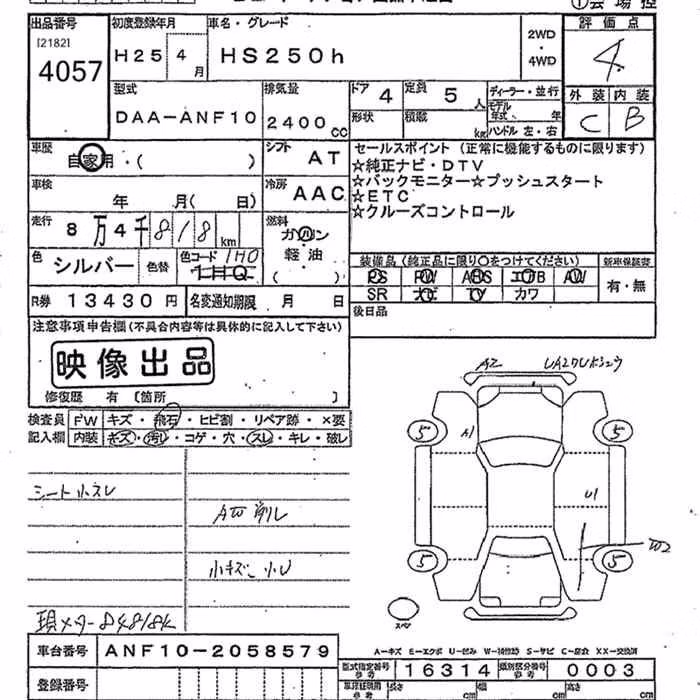 出品番号 初度登録年月 車名・グレード 2WD・4WD 評価点
[2182]
4057 H25 4月 HS250h 4
型式 排気量 ドア 4 定員 5人 ディーラー・並行 外装 内装
DAA-ANF10 2400cc 形状 積載 kg モデル年式 年 C B
ハンドル 左・右
車歴 自家用・( ) シフト AT セールスポイント (正常に機能するものに限ります)
☆純正ナビ・DTV
☆バックモニター☆プッシュスタート
☆ETC
☆クルーズコントロール
車検 年 月( 日) 冷房 AAC
走行 8万4千818km 燃料 ガソリン
軽油
( )
色 シルバー 色替 色コード 1H0
装備品 (純正品に限り○をつけてください) 新車保証書
PS PW ABS エアB AW 有・無
SR ナビ TV カワ
R券 13430円 名変通知期限 月 日 後日品
注意事項申告欄(不具合内容等は具体的に記入して下さい)
映像出品
修復歴 有 〔箇所 〕
検査員 FW キズ・飛石・ヒビ割・リペア跡・×要
記入欄 内装 キズ・汚レ・コゲ・穴・スレ・キレ・破レ
A2
5 A1 5
シート小スレ
U1
AW削レ
W2
小キズ小U
5 5
現メーター84818K
スペア
車台番号 ANF10-2058579
A-キズ E-エクボ U-凹み W-補修跡 S-サビ C-腐食 XX-交換済
型式指定番号 参考 16314 類別区分番号 参考 0003
登録番号
長さ cm 幅 cm 高さ cm